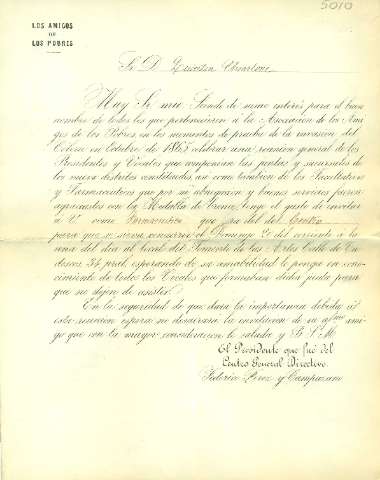 5010
LOS AMIGOS
DE
LOS POBRES
Sr. D.
Muy Sr. mio: Siendo de sumo interés para el buen
nombre de todos los que pertenecieron á la Asociacion de los Ami-
gos de los Pobres, en los momentos de prueba de la invasion del
Cólera en Octubre de 1865 celebrar una reunion general de los
Presidentes y Vocales que componian las juntas y sucursales de
los nueve distritos constituidos, asi como tambien de los Facultativos
y Farmacéuticos que por su abnegacion y buenos servicios fueron
agraciados con la Medalla de tengo el gusto de invitar
á V. como que fué del Centro
para que se sirva concurrir el Domingo 2 del corriente á la
una del dia al local del Fomento de las Artes Calle de
34 pral. esperando de su amabilidad lo ponga en cono-
cimiento de todos los Vocales que formaban dicha junta para
que no dejen de asistir.
En la seguridad de que dará la importancia debida á
esta reunion espera no desairará la invitacion de su afmo. ami-
go que con la mayor consideracion le saluda y B. S. M.
El Presidente que fué del
Centro General Directivo.
Federico Perez y Campuzano